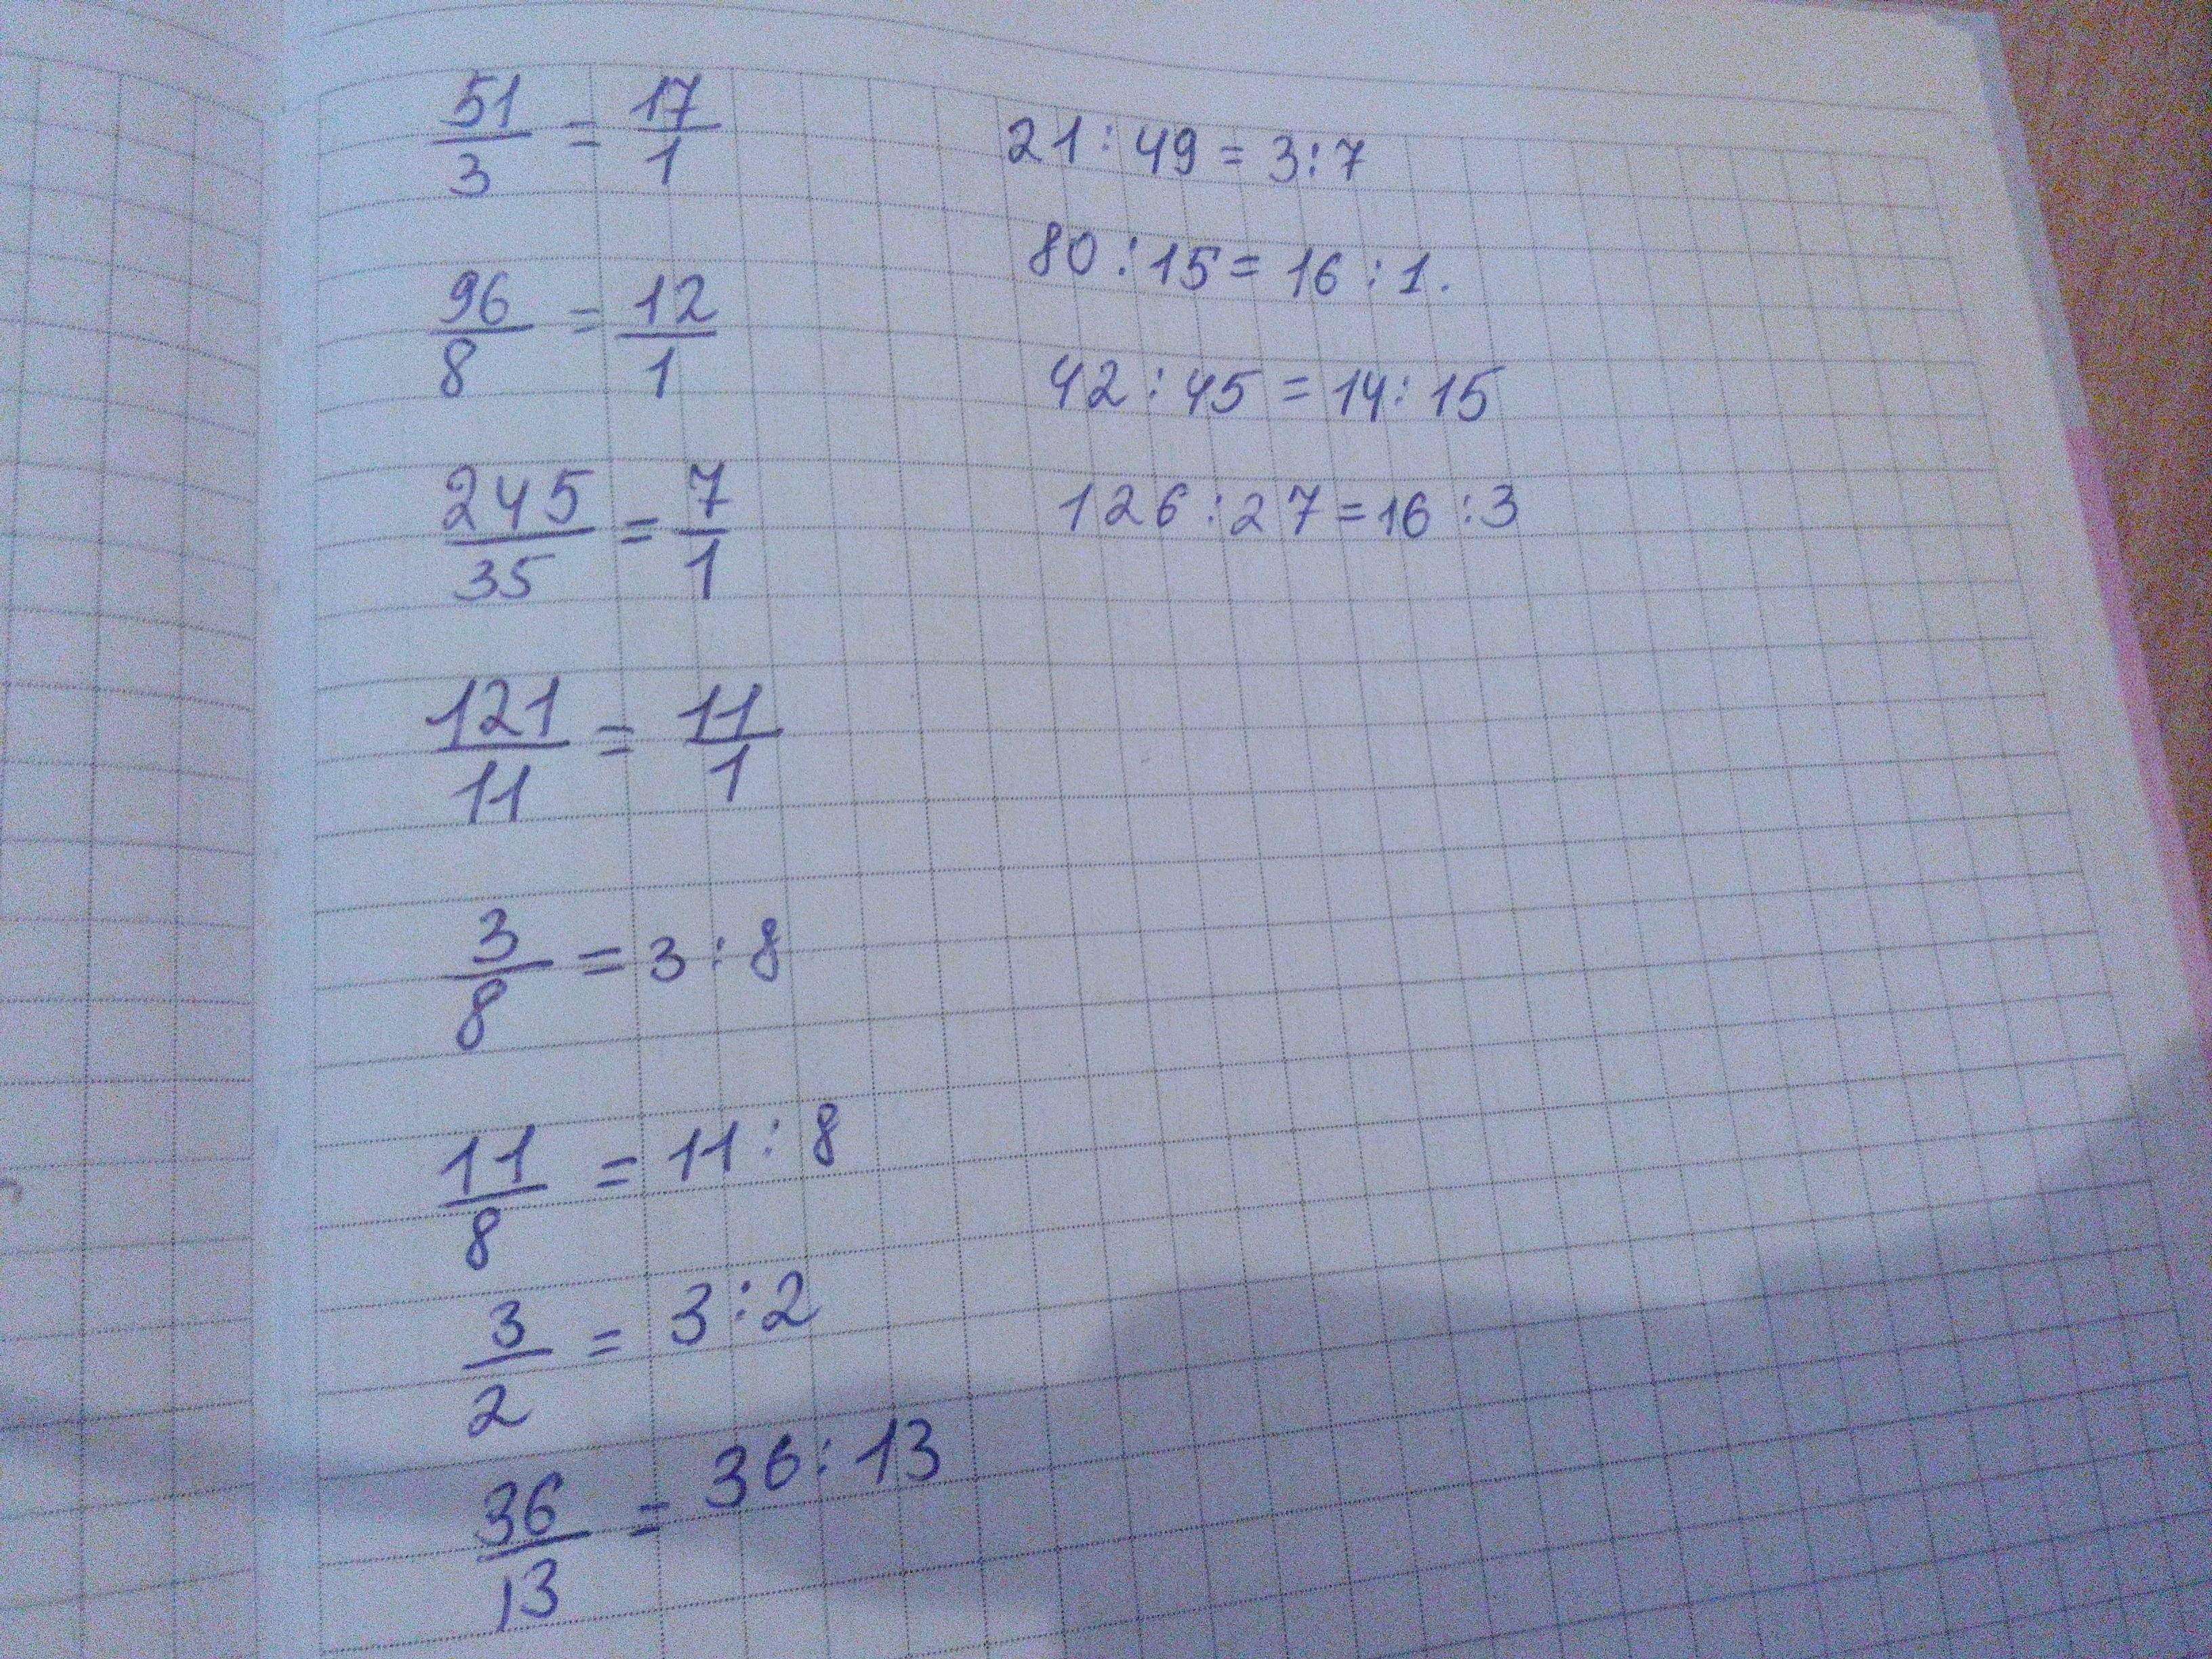 51/3 = 17/1
96/8 = 12/1
245/35 = 7/1
121/11 = 11/1
3/8 = 3:8
11/8 = 11:8
3/2 = 3:2
36/13 = 36:13
21:49 = 3:7
80:15 = 16:1.
42:45 = 14:15
126:27 = 16:3